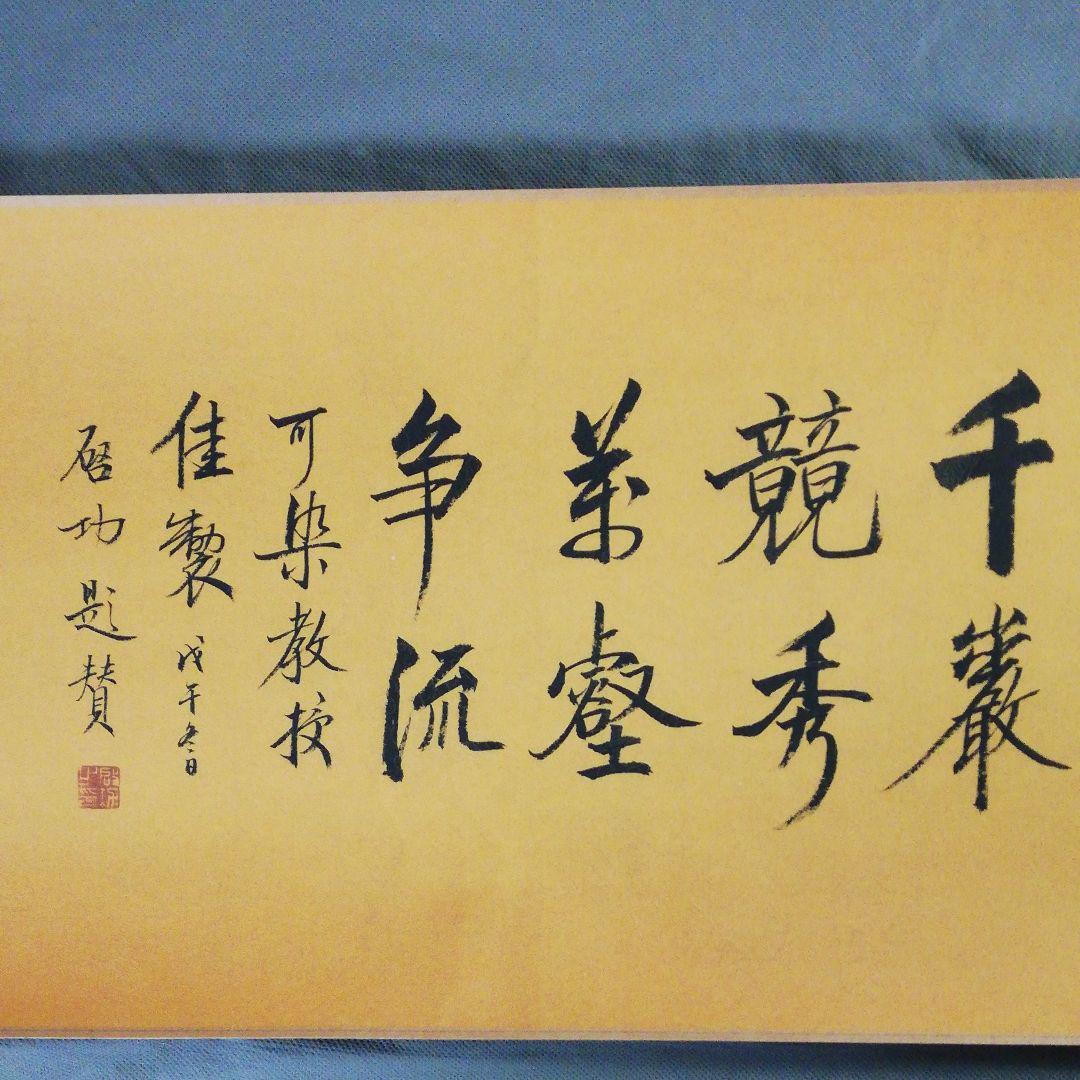 千巖
競秀
萬壑
争流
可染教授
佳製 戊午冬日
启功题赞